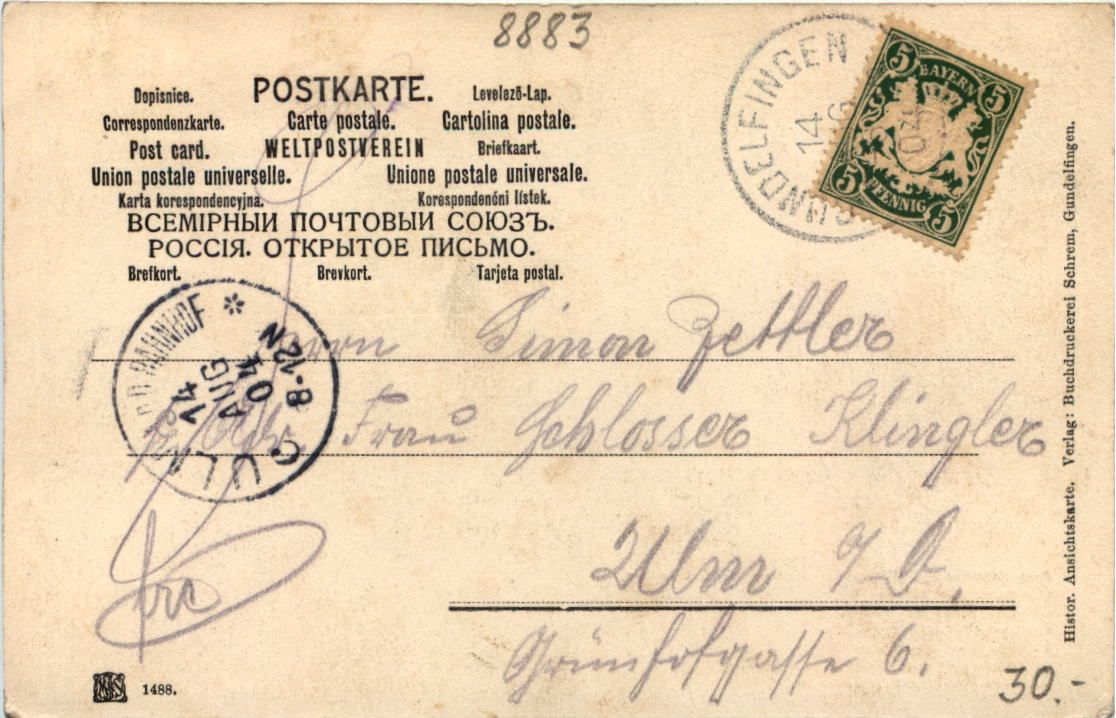 8883
POSTKARTE.
Dopisnice. Levelező-Lap.
Correspondenzkarte. Carte postale. Cartolina postale.
Post card. WELTPOSTVEREIN Briefkaart.
Union postale universelle. Unione postale universale.
Karta korespondencyjna. Korespondenčni listek.
ВСЕМІРНЫИ ПОЧТОВЫИ СОЮЗЪ.
РОССІЯ. ОТКРЫТОЕ ПИСЬМО.
Brefkort. Brevkort. Tarjeta postal.
GUNDELFINGEN
14
5 BAYERN 5
5 PFENNIG 5
ULM BAHNHOF
14
AUG
04
8-12 N
Herrn Simon Zettler
Adr. Frau Schlosser Klingler
Ulm a/D.
Grünhofgasse 6.
frc
1488.
30.-
Histor. Ansichtskarte. Verlag: Buchdruckerei Schrem, Gundelfingen.